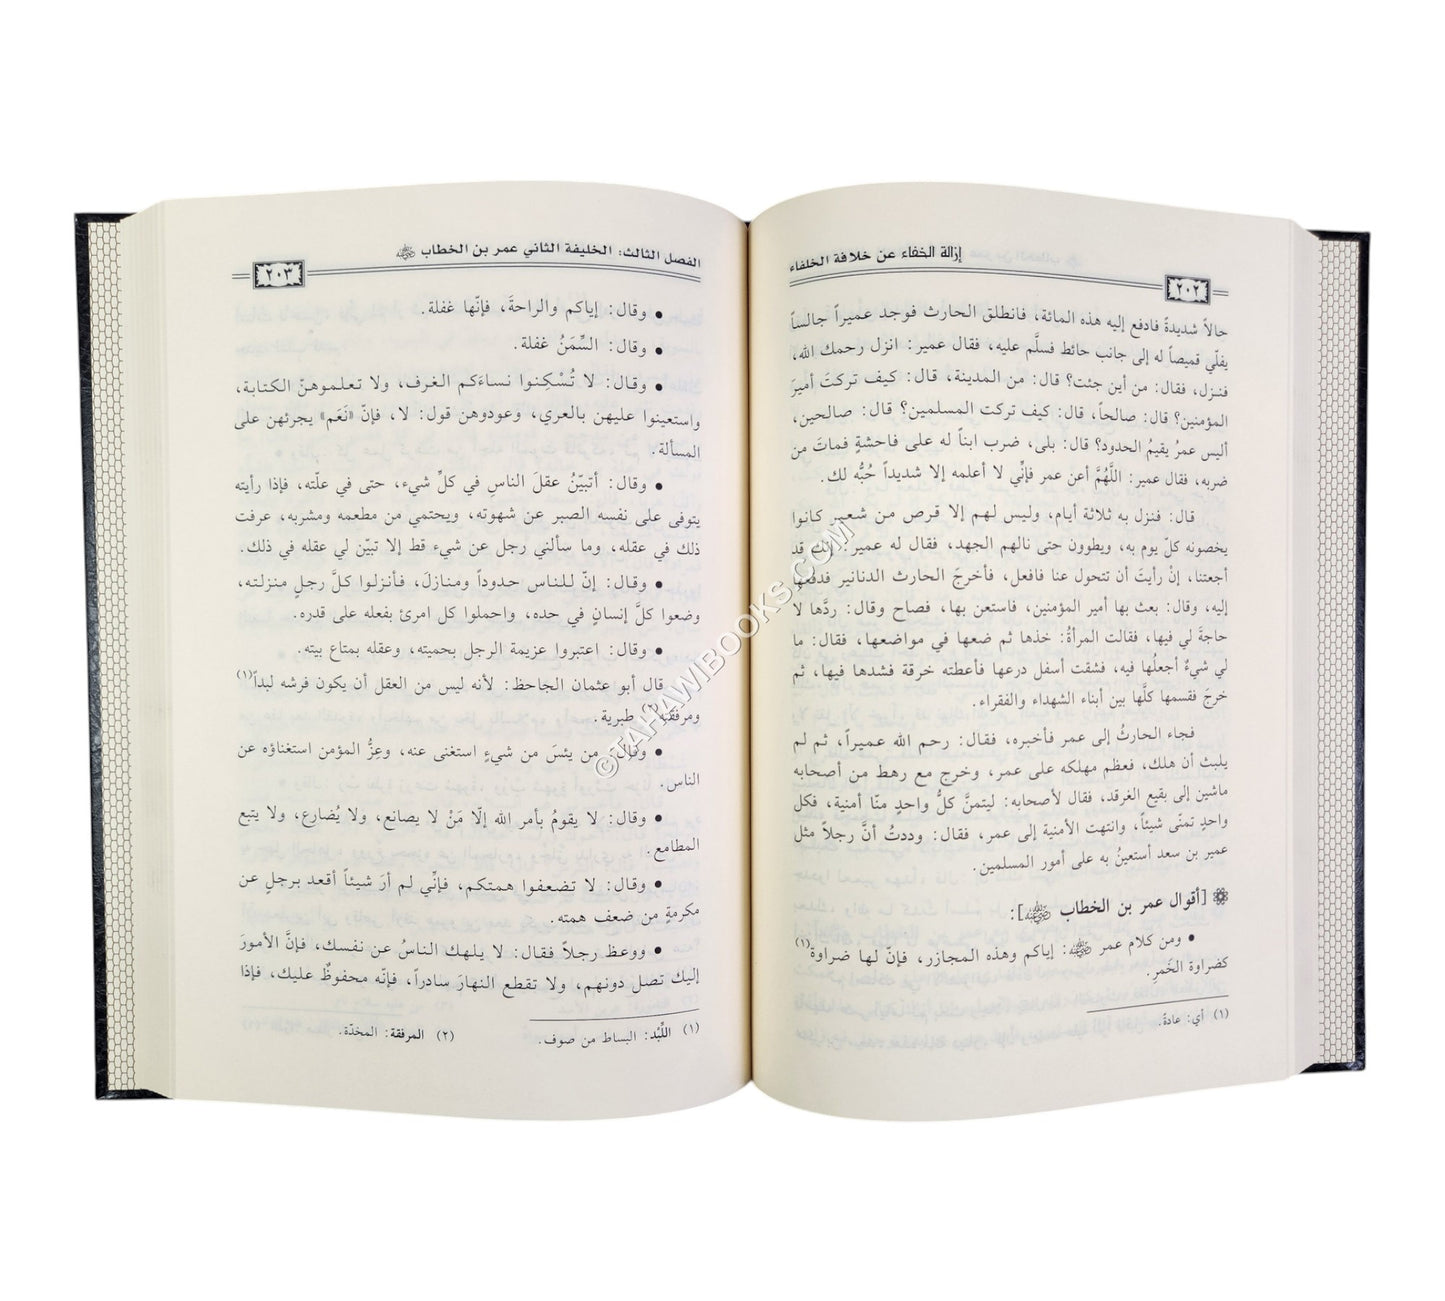 ٢٠٢
إزالة الخفاء عن خلافة الخلفاء
حالاً شديدةً فادفع إليه هذه المائة، فانطلق الحارث فوجد عميراً جالساً
يفلّي قميصاً له إلى جانب حائط فسلَّم عليه، فقال عمير: انزل رحمك الله،
فنزل، فقال: من أين جئت؟ قال: من المدينة، قال: كيف تركتَ أميرَ
المؤمنين؟ قال: صالحاً، قال: كيف تركت المسلمين؟ قال: صالحين،
أليس عمرُ يقيمُ الحدود؟ قال: بلى، ضرب ابناً له على فاحشةٍ فماتَ من
ضربه، فقال عمير: اللَّهُمَّ أعن عمر فإنِّي لا أعلمه إلا شديداً حُبُّه لك.
قال: فنزل به ثلاثة أيام، وليس لهم إلا قرص من شعير كانوا
يخصونه كلّ يوم به، ويطوون حتى نالهم الجهد، فقال له عمير: إنك قد
أجعتنا، إنْ رأيتَ أن تتحول عنا فافعل، فأخرجَ الحارث الدنانير فدفعها
إليه، وقال: بعث بها أمير المؤمنين، فاستعن بها، فصاح وقال: ردَّها لا
حاجةَ لي فيها، فقالت المرأةُ: خذها ثم ضعها في مواضعها، فقال: ما
لي شيءٌ أجعلُها فيه، فشقت أسفل درعها فأعطته خرقة فشدها فيها، ثم
خرجَ فقسمها كلَّها بين أبناء الشهداء والفقراء.
فجاء الحارثُ إلى عمر فأخبره، فقال: رحم الله عميراً، ثم لم
يلبث أن هلك، فعظم مهلكه على عمر، وخرج مع رهط من أصحابه
ماشين إلى بقيع الغرقد، فقال لأصحابه: ليتمنَّ كلُّ واحدٍ منّا أمنية، فكل
واحدٍ تمنّى شيئاً، وانتهت الأمنية إلى عمر، فقال: وددتُ أنَّ رجلاً مثل
عمير بن سعد أستعينُ به على أمور المسلمين.
[أقوال عمر بن الخطاب ﷺ]:
• ومن كلام عمر ﷺ: إياكم وهذه المجازر، فإنّ لها ضراوة(١)
كضراوة الخَمرِ.
(١) أي: عادةً.
الفصل الثالث: الخليفة الثاني عمر بن الخطاب ﷺ
٢٠٣
• وقال: إياكم والراحةَ، فإنّها غفلة.
• وقال: السِّمَنُ غفلة.
• وقال: لا تُسْكِنوا نساءَكم الغرف، ولا تعلموهنّ الكتابة،
واستعينوا عليهن بالعري، وعودوهن قول: لا، فإنّ «نَعَم» يجرئهن على
المسألة.
• وقال: أتبيّنُ عقلَ الناسِ في كلِّ شيء، حتى في علّته، فإذا رأيته
يتوفى على نفسه الصبر عن شهوته، ويحتمي من مطعمه ومشربه، عرفت
ذلك في عقله، وما سألني رجل عن شيء قط إلا تبيّن لي عقله في ذلك.
• وقال: إنّ للناس حدوداً ومنازلَ، فأنزلوا كلَّ رجلٍ منزلته،
وضعوا كلَّ إنسانٍ في حده، واحملوا كل امرئ بفعله على قدره.
• وقال: اعتبروا عزيمة الرجل بحميته، وعقله بمتاع بيته.
قال أبو عثمان الجاحظ: لأنه ليس من العقل أن يكون فرشه لبداً(١)
ومرفقته(٢) طبرية.
• وقال: من يئسَ من شيءٍ استغنى عنه، وعِزُّ المؤمن استغناؤه عن
الناس.
• وقال: لا يقومُ بأمر الله إلّا مَنْ لا يصانع، ولا يُضارع، ولا يتبع
المطامع.
• وقال: لا تضعفوا همتكم، فإنِّي لم أرَ شيئاً أقعد برجلٍ عن
مكرمةٍ من ضعف همته.
• ووعظ رجلاً فقال: لا يلهك الناسُ عن نفسك، فإنَّ الأمورَ
إليك تصل دونهم، ولا تقطع النهارَ سادراً، فإنّه محفوظٌ عليك، فإذا
(١) اللِّبْد: البساط من صوف.
(٢) المرفقة: المخدّة.
©TAHAWIBOOKS.COM